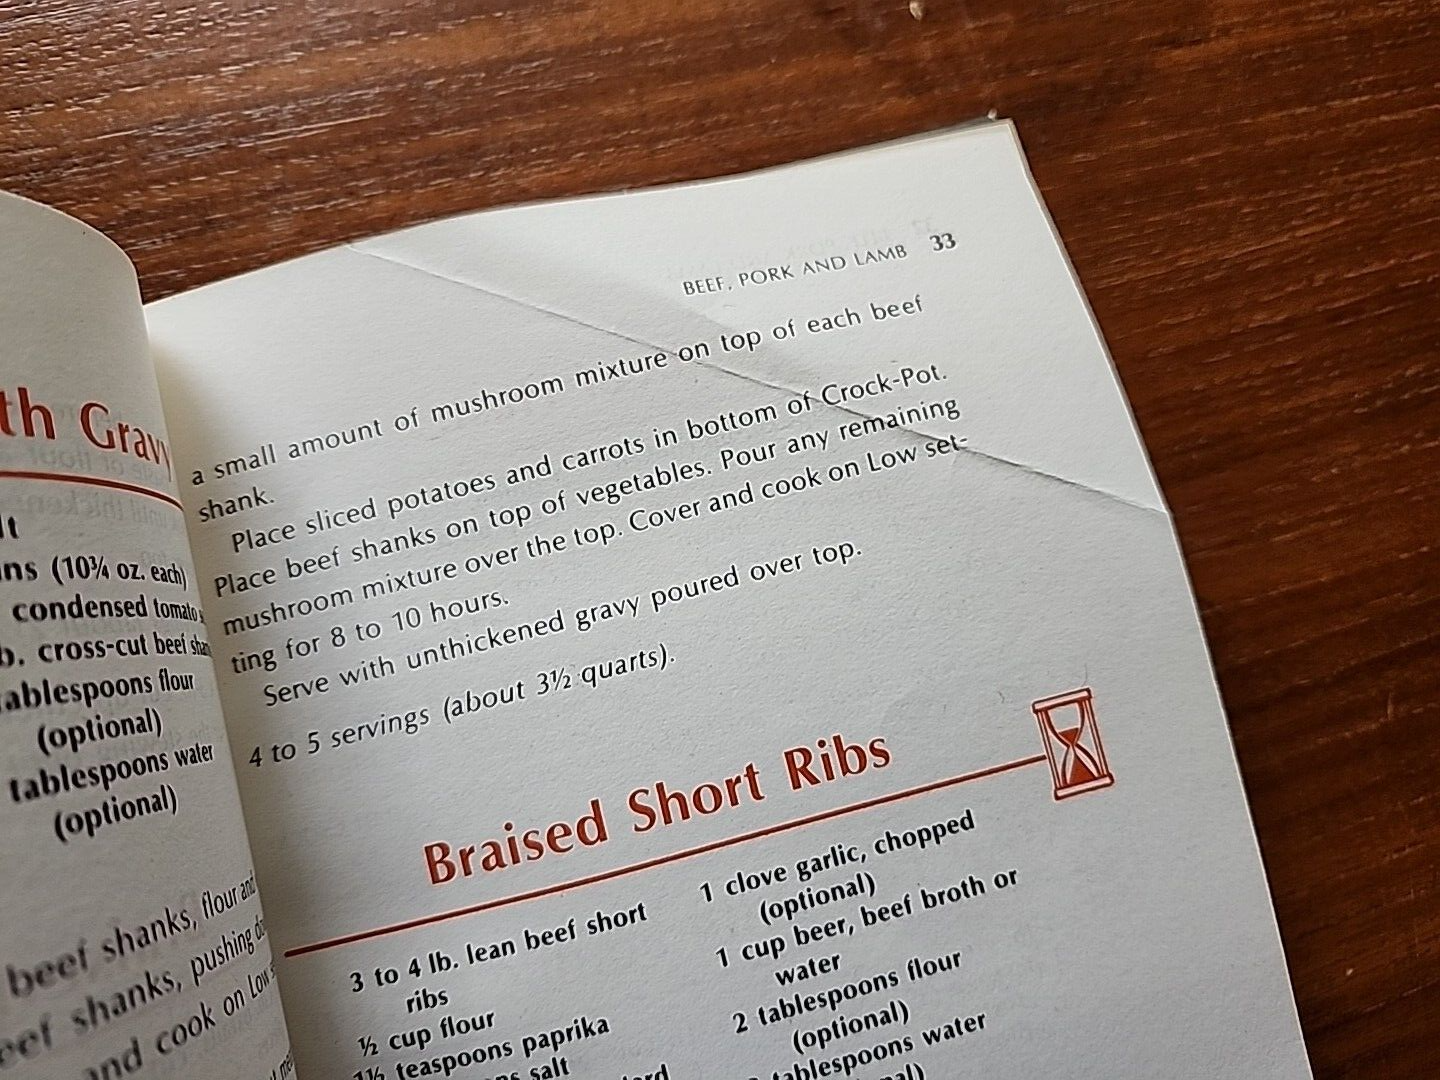 th Gravy
ns (10¾ oz. each)
condensed tomato
cross-cut beef
tablespoons flour
(optional)
tablespoons water
(optional)
beef shanks, flour and
shanks, pushing
and cook on Low
BEEF, PORK AND LAMB 33
a small amount of mushroom mixture on top of each beef
shank.
Place sliced potatoes and carrots in bottom of Crock-Pot.
Place beef shanks on top of vegetables. Pour any remaining
mushroom mixture over the top. Cover and cook on Low set-
ting for 8 to 10 hours.
Serve with unthickened gravy poured over top.
4 to 5 servings (about 3½ quarts).
Braised Short Ribs
3 to 4 lb. lean beef short
ribs
½ cup flour
1½ teaspoons paprika
salt
1 clove garlic, chopped
(optional)
1 cup beer, beef broth or
water
2 tablespoons flour
(optional)
tablespoons water